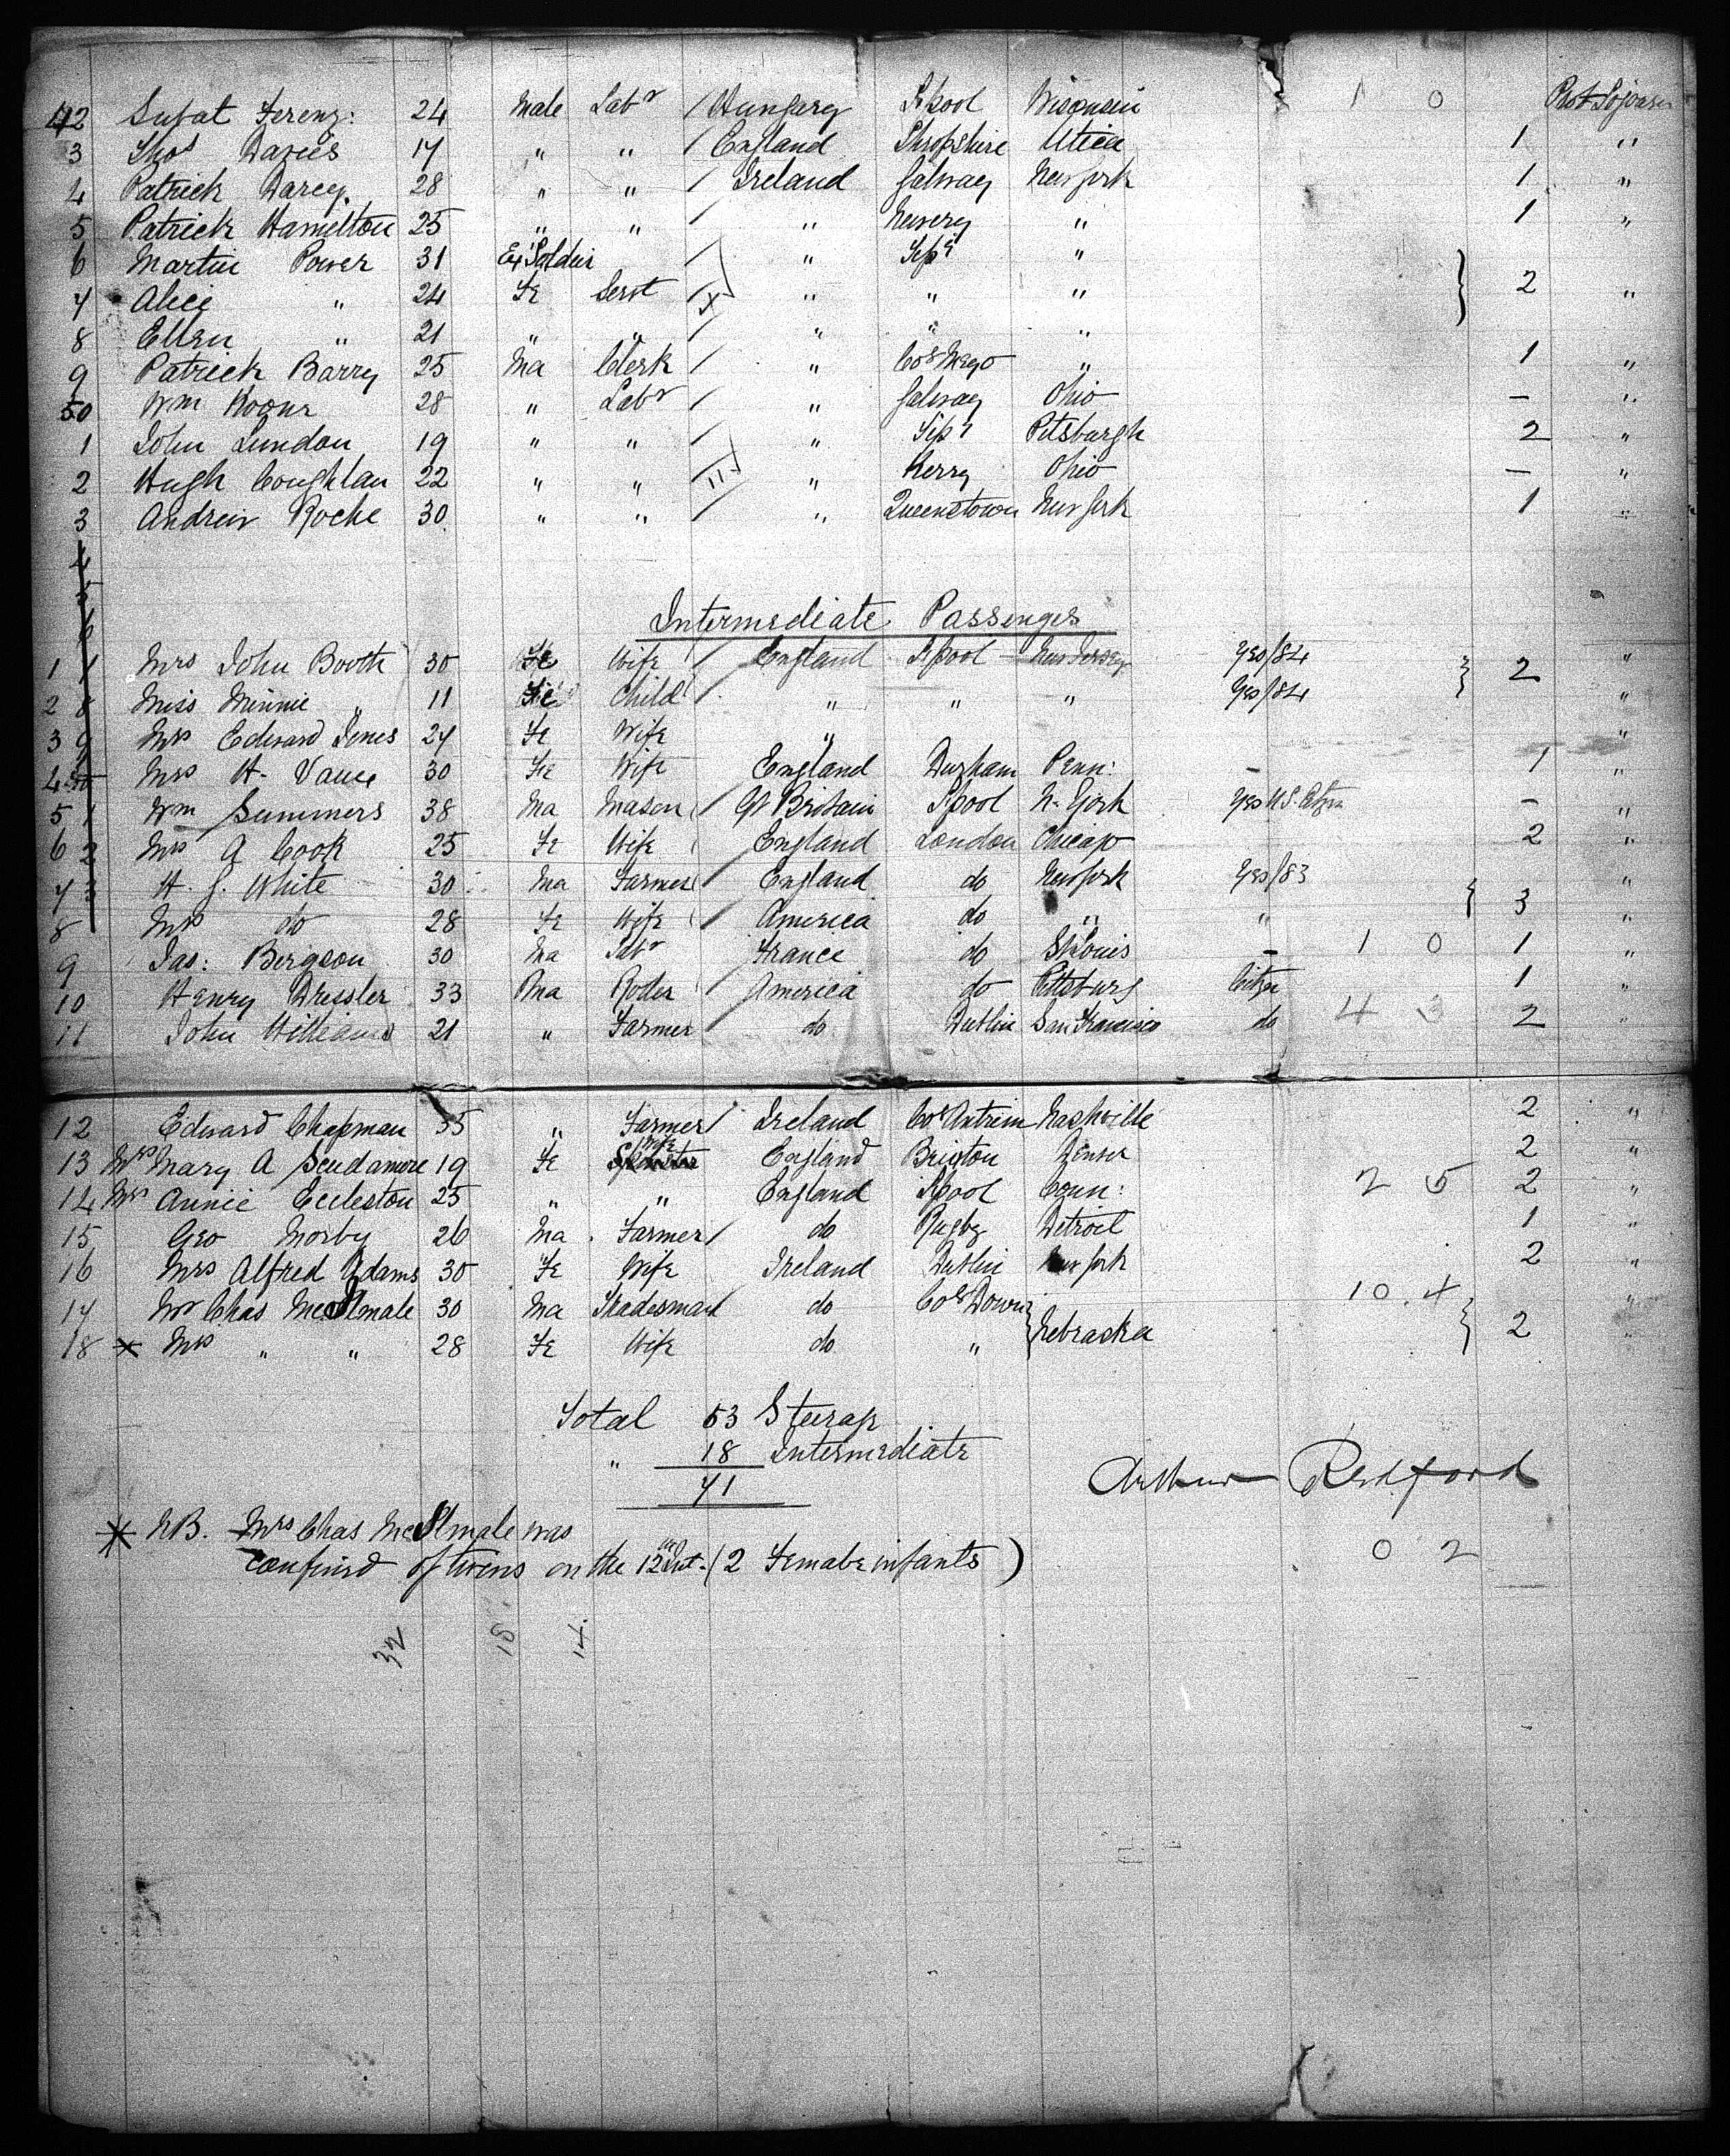 42 Sufat Ferenz: 24 Male Labr / Hungary L'pool Wisconsin 1 0 Prot Sojourn
3 Thos Davies 17 " " / England Shropshire Utica 1 "
4 Patrick Darcy. 28 " " / Ireland Galway New York 1 "
5 Patrick Hamelton 25 " " / " Newery " 1 "
6 Martin Power 31 Ex Soldier / " Tipy "
7 Alice " 24 Fe Servt / " " " } 2 "
8 Ellen " 21 " " / " " "
9 Patrick Barry 25 Ma Clerk / " Coy Mayo " 1 "
50 Wm 28 " Labr / " Galway Ohio – "
1 John Lundon 19 " " / " Tipy Pitsburgh 2 "
2 Hugh Coughlan 22 " " / " Kerry Ohio – "
3 Andrew Roche 30 " " / " Queenstown New York 1 "
4
5
6
Intermediate Passengers
1 Mrs John Booth 30 Fe Wife / England L'pool New Jersey Yes/84
2 Miss Minnie " 11 Fe Child / " " " Yes/84 } 2 "
3 Mrs Edward Jones 27 Fe Wife " "
4 Mrs H. Vance 30 Fe Wife England Durham Penn: – 1 "
5 Wm Summers 38 Ma Mason / Gt Britain L'pool N. York Yes U.S. Citzn – "
6 Mrs A Cook 25 Fe Wife / England London Chicago 2 "
7 H. J. White 30 Ma Farmer / England do New York Yes/83 "
8 Mrs do 28 Fe Wife / America do " " } 3 "
9 Jas: Bergson 30 Ma Labr / France do St Louis – 1 0 1 "
10 Henry Dressler 33 Ma / America do Pittsburg Citzn 1 "
11 John Williams 21 " Farmer / do Dublin San Francisco do 4 3 2 "
12 Edward Chapman 35 " Farmer / Ireland Coy Antrim Nashville 2 "
13 Mrs Mary A Scudamore 19 Fe Wife England Brixton Denver 2 "
14 Mrs Annie Eccleston 25 " " England L'pool Conn: 2 5 2 "
15 Geo Morby 26 Ma Farmer / do Rugby Detroit 1 "
16 Mrs Alfred Adams 30 Fe Wife Ireland Dublin New York 2 "
17 Mr Chas McIlmale 30 Ma Tradesman do Coy Down 10 4 "
18 * Mrs " " 28 Fe Wife do " } Nebraska } 2 "
Total 53 Steerage
" 18 Intermediate
71
Arthur Redford
* NB. Mrs Chas McIlmale was
confined of twins on the 12th Inst. (2 Female infants) 0 2
32 18 14